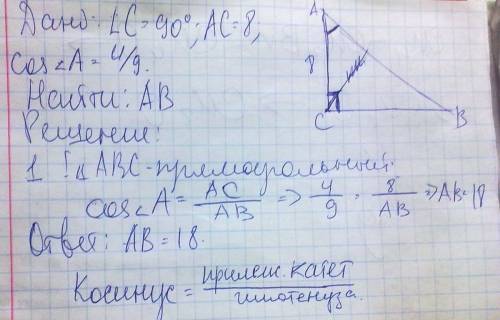 Дано: ∠C = 90°; AC = 8,
cos∠A = 4/9.
Найти: AB
Решение:
1 ABC - прямоугольный.
cos∠A = AC/AB => 4/9 = 8/AB => AB = 18
Ответ: AB = 18.
Косинус = прилеж. катет/гипотенуза.
A
8
C
B